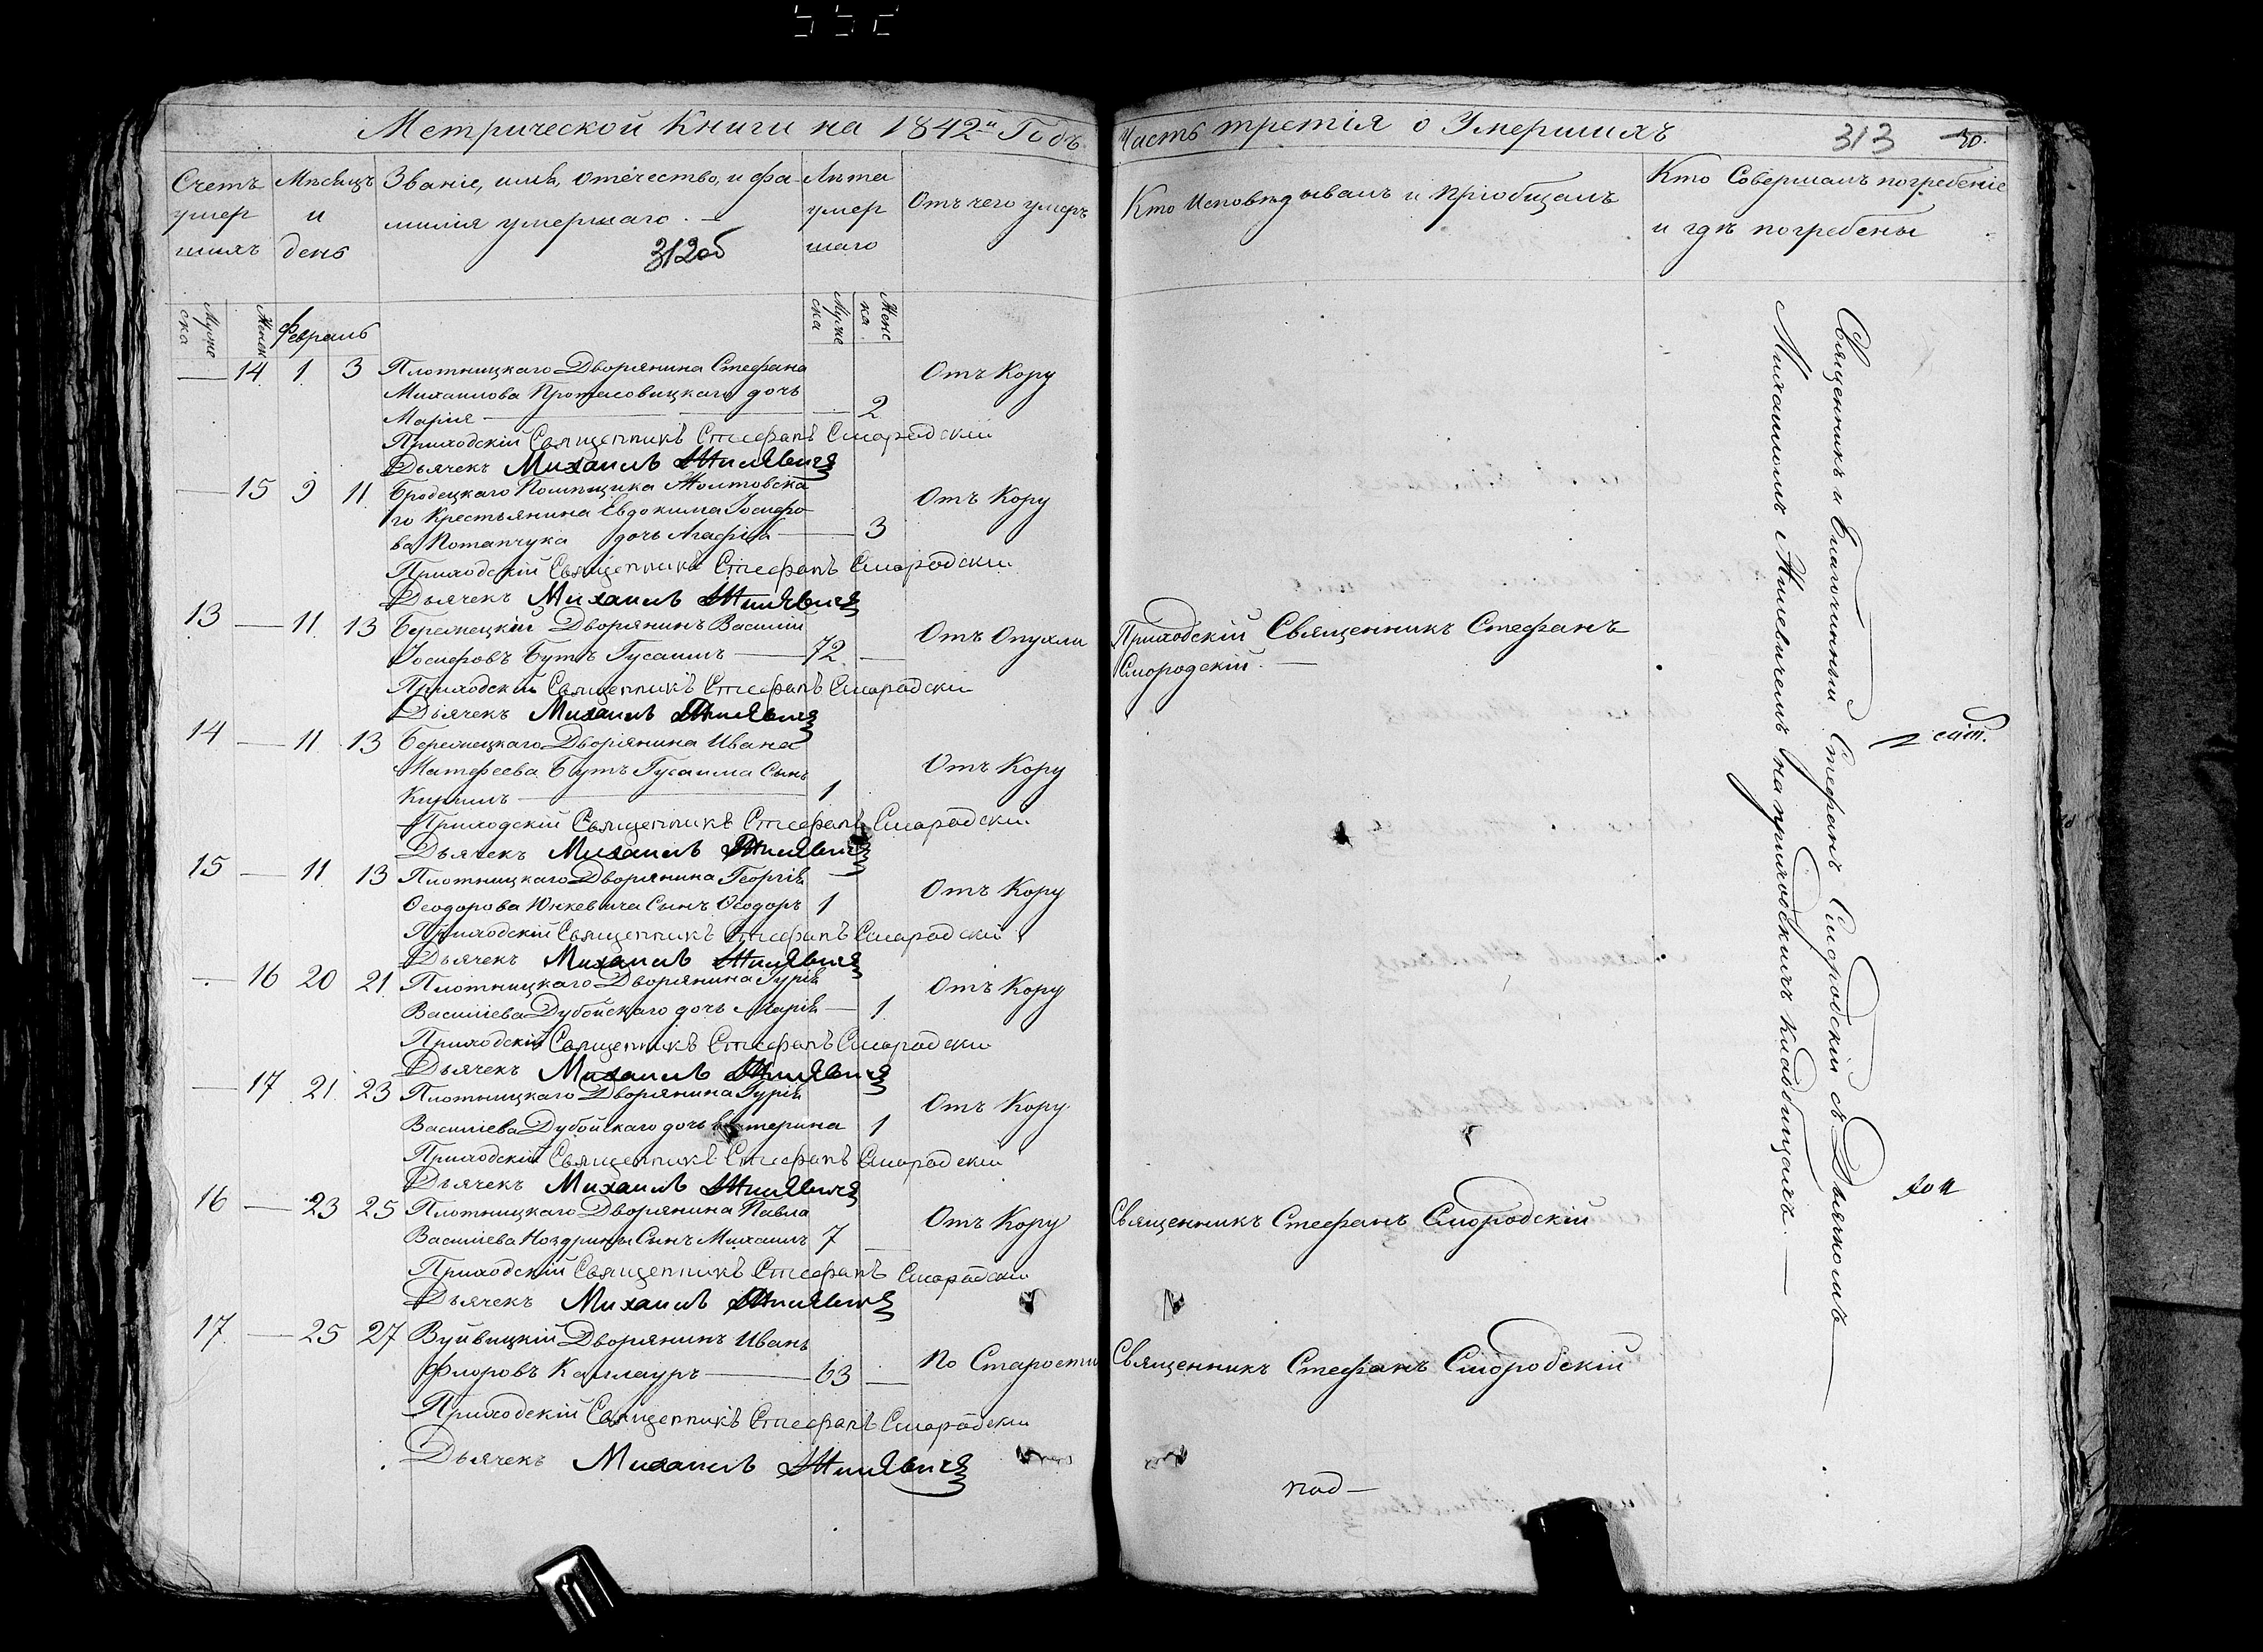 Метрической Книги на 1842й Годъ
Часть третія о Умершихъ
313
30.
Счетъ умер шихъ
Мѣсяцъ и день
Званіе, имя, отечество, и фа-
милія умершаго. —
312об
Лѣта умер шаго
Отъ чего умеръ
Кто Исповѣдывалъ и Пріобщалъ
Кто Совершалъ погребеніе
и гдѣ погребены
Муже ска
Женск
Февраль
Муже ска
Женс ка
— 14 1. 3 Плотницкаго Дворянина Стефана
Михаилова Протасовицкаго дочь
Марія — — 2 Отъ Кору
Приходскій Священникъ Стефанъ Смородскій
Дьячекъ Михаилъ Жилевичъ
— 15 9 11 Бродецкаго Помѣщика Жолтовска
го Крестьянина Евдокима Іосифо-
ва Потапчука дочь Агафія — 3 Отъ Кору
Приходскій Священникъ Стефанъ Смородски
Дьячекъ Михаилъ Жилевичъ
13 — 11. 13 Бережецкій Дворянинъ Василій
Іосифовъ Бутъ Гусаимъ — 72. — Отъ Опухли
Приходскій Священникъ Стефанъ
Смородскій. —
Приходскій Священникъ Стефанъ Смородски
Дьячекъ Михаилъ Жилевичъ
14 — 11 13 Бережецкаго Дворянина Ивана
Матфеева Бутъ Гусаима Сынъ
Кирилъ — 1 Отъ Кору
Приходскій Священникъ Стефанъ Смородски
Дьячекъ Михаилъ Жилевичъ
15 — 11. 13 Плотницкаго Дворянина Георгія
Ѳеодорова Юнкевича Сынъ Ѳеодоръ 1 Отъ Кору
Приходскій Священникъ Стефанъ Смородскій
Дьячекъ Михаилъ Жилевичъ
— 16 20 21. Плотницкаго Дворянина Гурія
Василіева Дубойскаго дочь Марія — 1. Отъ Кору
Приходскій Священникъ Стефанъ Смородски
Дьячекъ Михаилъ Жилевичъ
— 17 21. 23 Плотницкаго Дворянина Гурія
Василіева Дубойскаго дочь Екатерина 1 Отъ Кору
Приходскій Священникъ Стефанъ Смородскій
Дьячекъ Михаилъ Жилевичъ
16 — 23 25 Плотницкаго Дворянина Павла
Василіева Ноздрины Сынъ Михаилъ 7 — Отъ Кору
Священникъ Стефанъ Смородскій
Приходскій Священникъ Стефанъ Смородски
Дьячекъ Михаилъ Жилевичъ
17. — 25 27 Вуйвицкій Дворянинъ Иванъ
Флоровъ Каллауръ — 63 — По Старости
Священникъ Стефанъ Смородскій
Приходскій Священникъ Стефанъ Смородски
Дьячекъ Михаилъ Жилевичъ
Священникъ и Благочинный Стефанъ Смородскій съ Дьячкомъ —
Михаиломъ Жилевичемъ на приходскихъ кладбищахъ. —